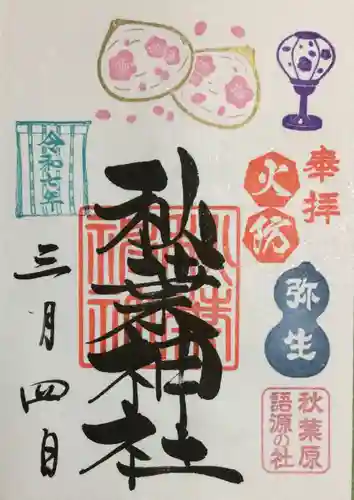 奉拝
火防
弥生
秋葉原
語源の社
秋葉神社
秋葉神社
令和七年
三月四日